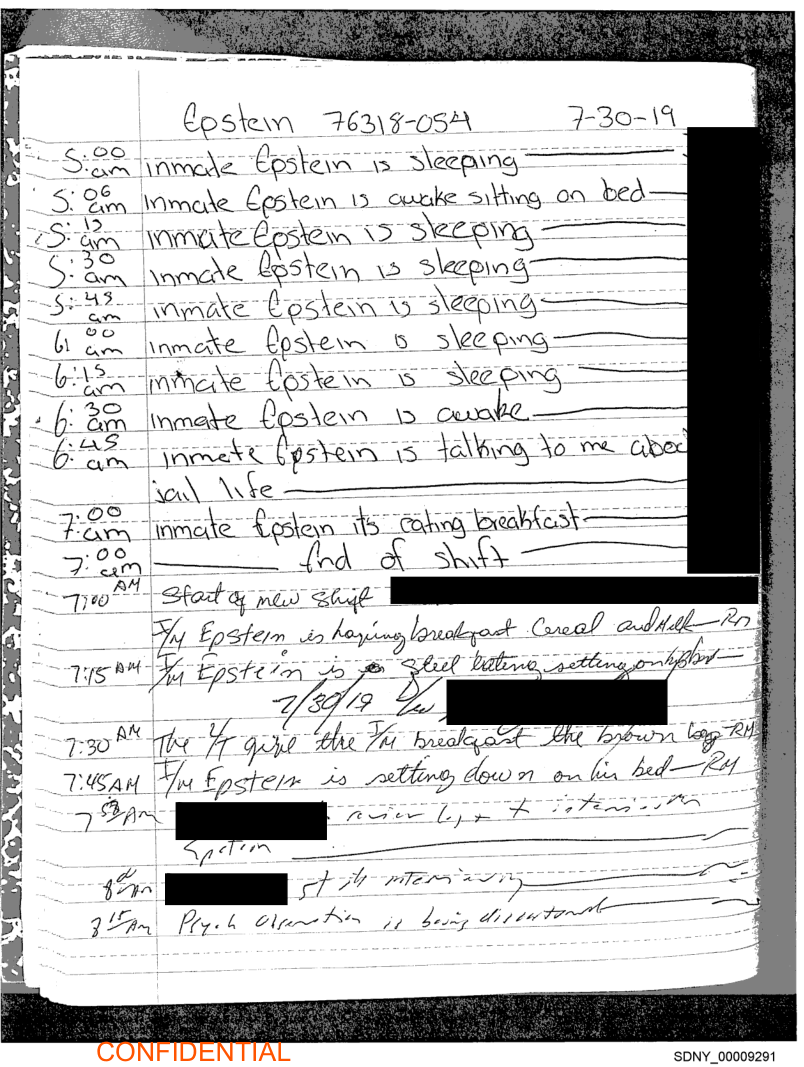 Epstein 76318-054 7-30-19
5:00 am inmate Epstein is sleeping
5:06 am inmate Epstein is awake sitting on bed
5:15 am inmate Epstein is sleeping
5:30 am inmate Epstein is sleeping
5:45 am inmate Epstein is sleeping
6:00 am inmate Epstein is sleeping
6:15 am inmate Epstein is sleeping
6:30 am inmate Epstein is awake
6:45 am inmate Epstein is talking to me
jail life
7:00 am inmate Epstein its eating breakfast
7:00 am End of shift
7:00 AM Start of new shift
I/M Epstein is having breakfast Cereal and Milk
7:15 AM I/M Epstein is eating setting on
7/30/19
7:30 AM The give the I/M breakfast the brown bag RM
7:45 AM I/M Epstein is setting down on his bed RM
AM review log +
Epstein
8 AM interviewing
8 15 AM Psych observation is being
CONFIDENTIAL
SDNY_00009291